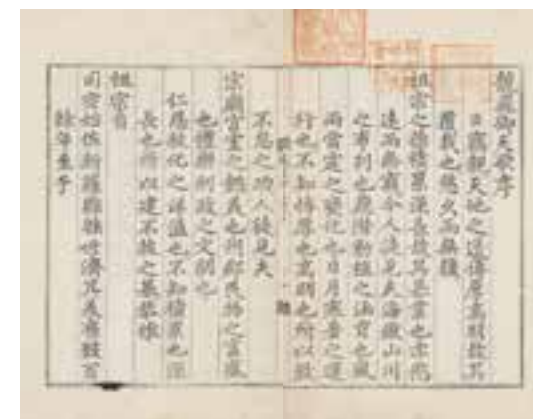 龍飛御天歌序
臣竊觀天地之道博厚高明故其
覆載也悠久而無疆
祖宗之德積累深長故其基業也亦悠
遠而無窮今人徒見夫海嶽山川
之布列也鳥獸動植之涵育也風
雨雷霆之變化也日月寒暑之運
行也不知博厚也高明也所以致
不息之功人徒見夫
宗廟宮室之懿美也州郡民物之富庶
也禮樂刑政之文明也
仁恩敎化之洋溢也不知積累也深
長也所以建不拔之基恭惟
祖宗自
司空始佐新羅綿綿世濟其美有數百
餘年至于